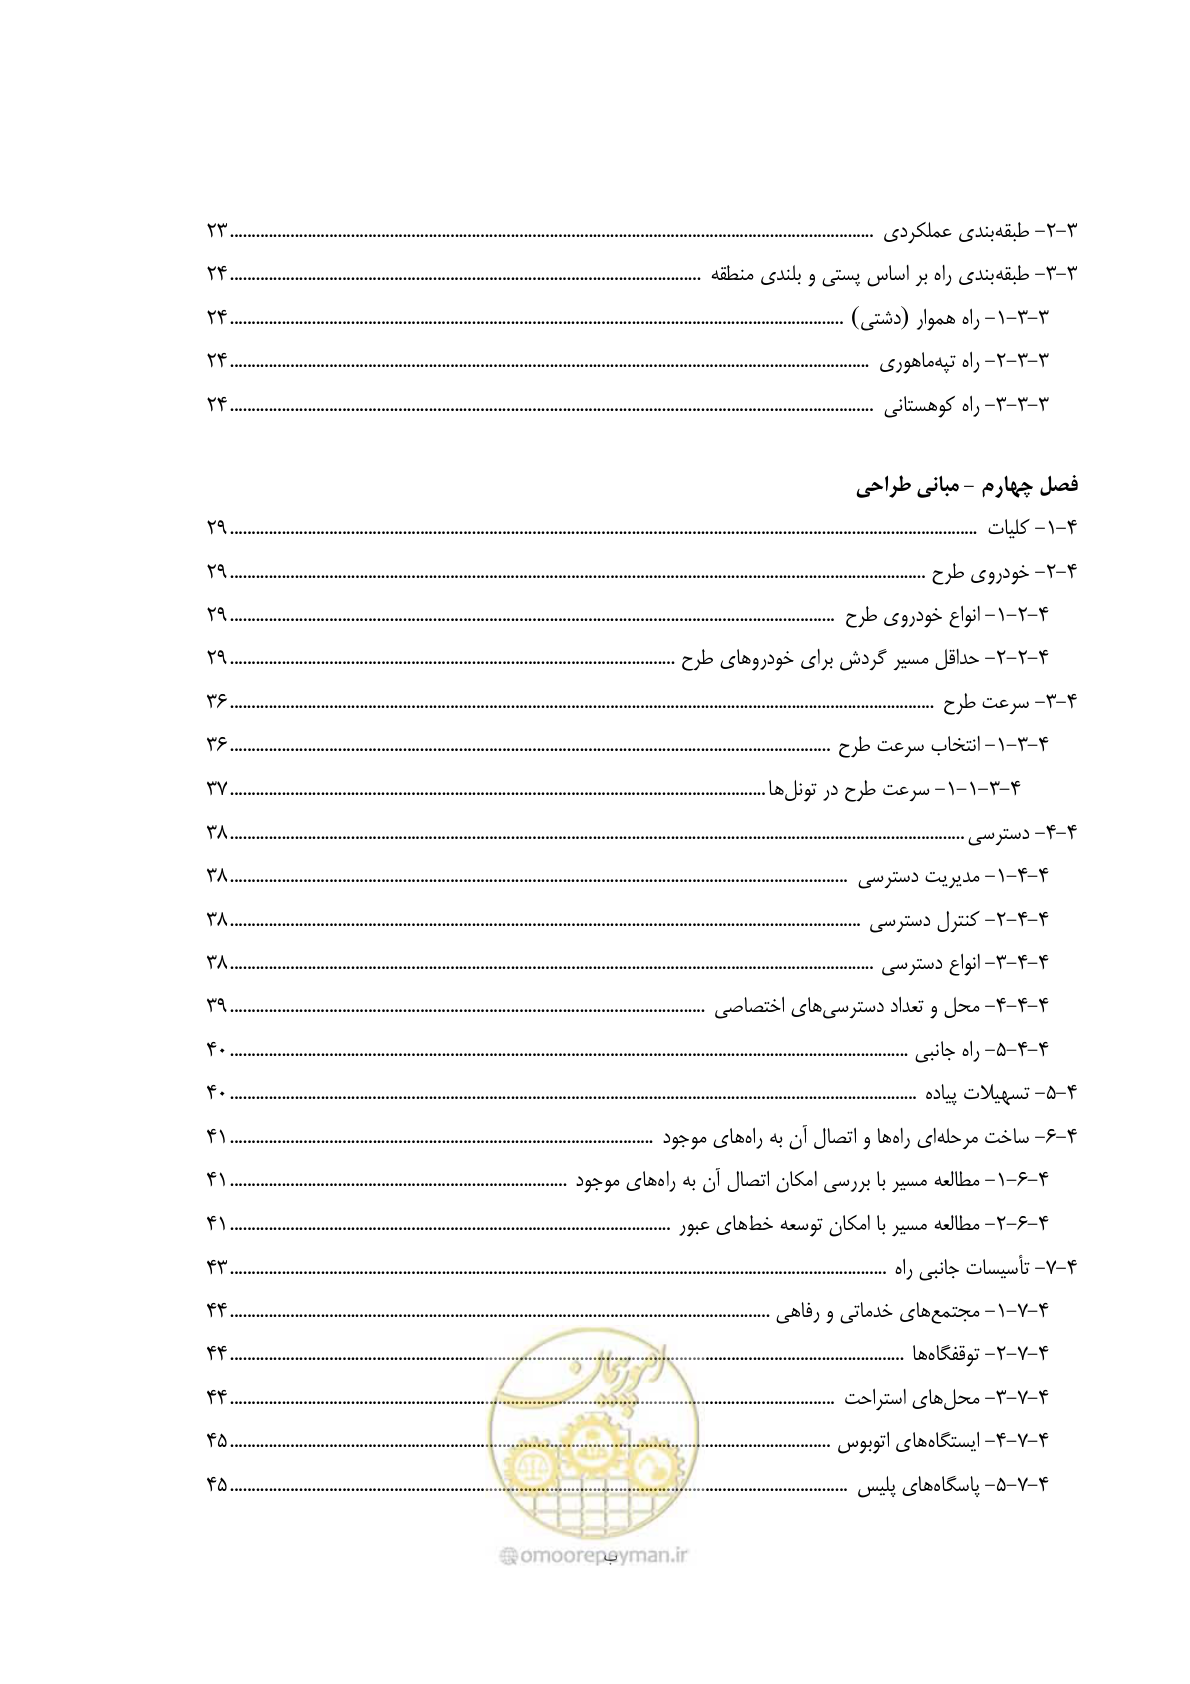 ۳-۲- طبقه‌بندی عملکردی ........ ۲۳
۳-۳- طبقه‌بندی راه بر اساس پستی و بلندی منطقه ........ ۲۴
۳-۳-۱- راه هموار (دشتی) ........ ۲۴
۳-۳-۲- راه تپه‌ماهوری ........ ۲۴
۳-۳-۳- راه کوهستانی ........ ۲۴
فصل چهارم - مبانی طراحی
۴-۱- کلیات ........ ۲۹
۴-۲- خودروی طرح ........ ۲۹
۴-۲-۱- انواع خودروی طرح ........ ۲۹
۴-۲-۲- حداقل مسیر گردش برای خودروهای طرح ........ ۲۹
۴-۳- سرعت طرح ........ ۳۶
۴-۳-۱- انتخاب سرعت طرح ........ ۳۶
۴-۳-۱-۱- سرعت طرح در تونل‌ها ........ ۳۷
۴-۴- دسترسی ........ ۳۸
۴-۴-۱- مدیریت دسترسی ........ ۳۸
۴-۴-۲- کنترل دسترسی ........ ۳۸
۴-۴-۳- انواع دسترسی ........ ۳۸
۴-۴-۴- محل و تعداد دسترسی‌های اختصاصی ........ ۳۹
۴-۴-۵- راه جانبی ........ ۴۰
۴-۵- تسهیلات پیاده ........ ۴۰
۴-۶- ساخت مرحله‌ای راه‌ها و اتصال آن به راه‌های موجود ........ ۴۱
۴-۶-۱- مطالعه مسیر با بررسی امکان اتصال آن به راه‌های موجود ........ ۴۱
۴-۶-۲- مطالعه مسیر با امکان توسعه خط‌های عبور ........ ۴۱
۴-۷- تأسیسات جانبی راه ........ ۴۳
۴-۷-۱- مجتمع‌های خدماتی و رفاهی ........ ۴۴
۴-۷-۲- توقفگاه‌ها ........ ۴۴
۴-۷-۳- محل‌های استراحت ........ ۴۴
۴-۷-۴- ایستگاه‌های اتوبوس ........ ۴۵
۴-۷-۵- پاسگاه‌های پلیس ........ ۴۵
امور پیمان
omoorepeyman.ir
ب